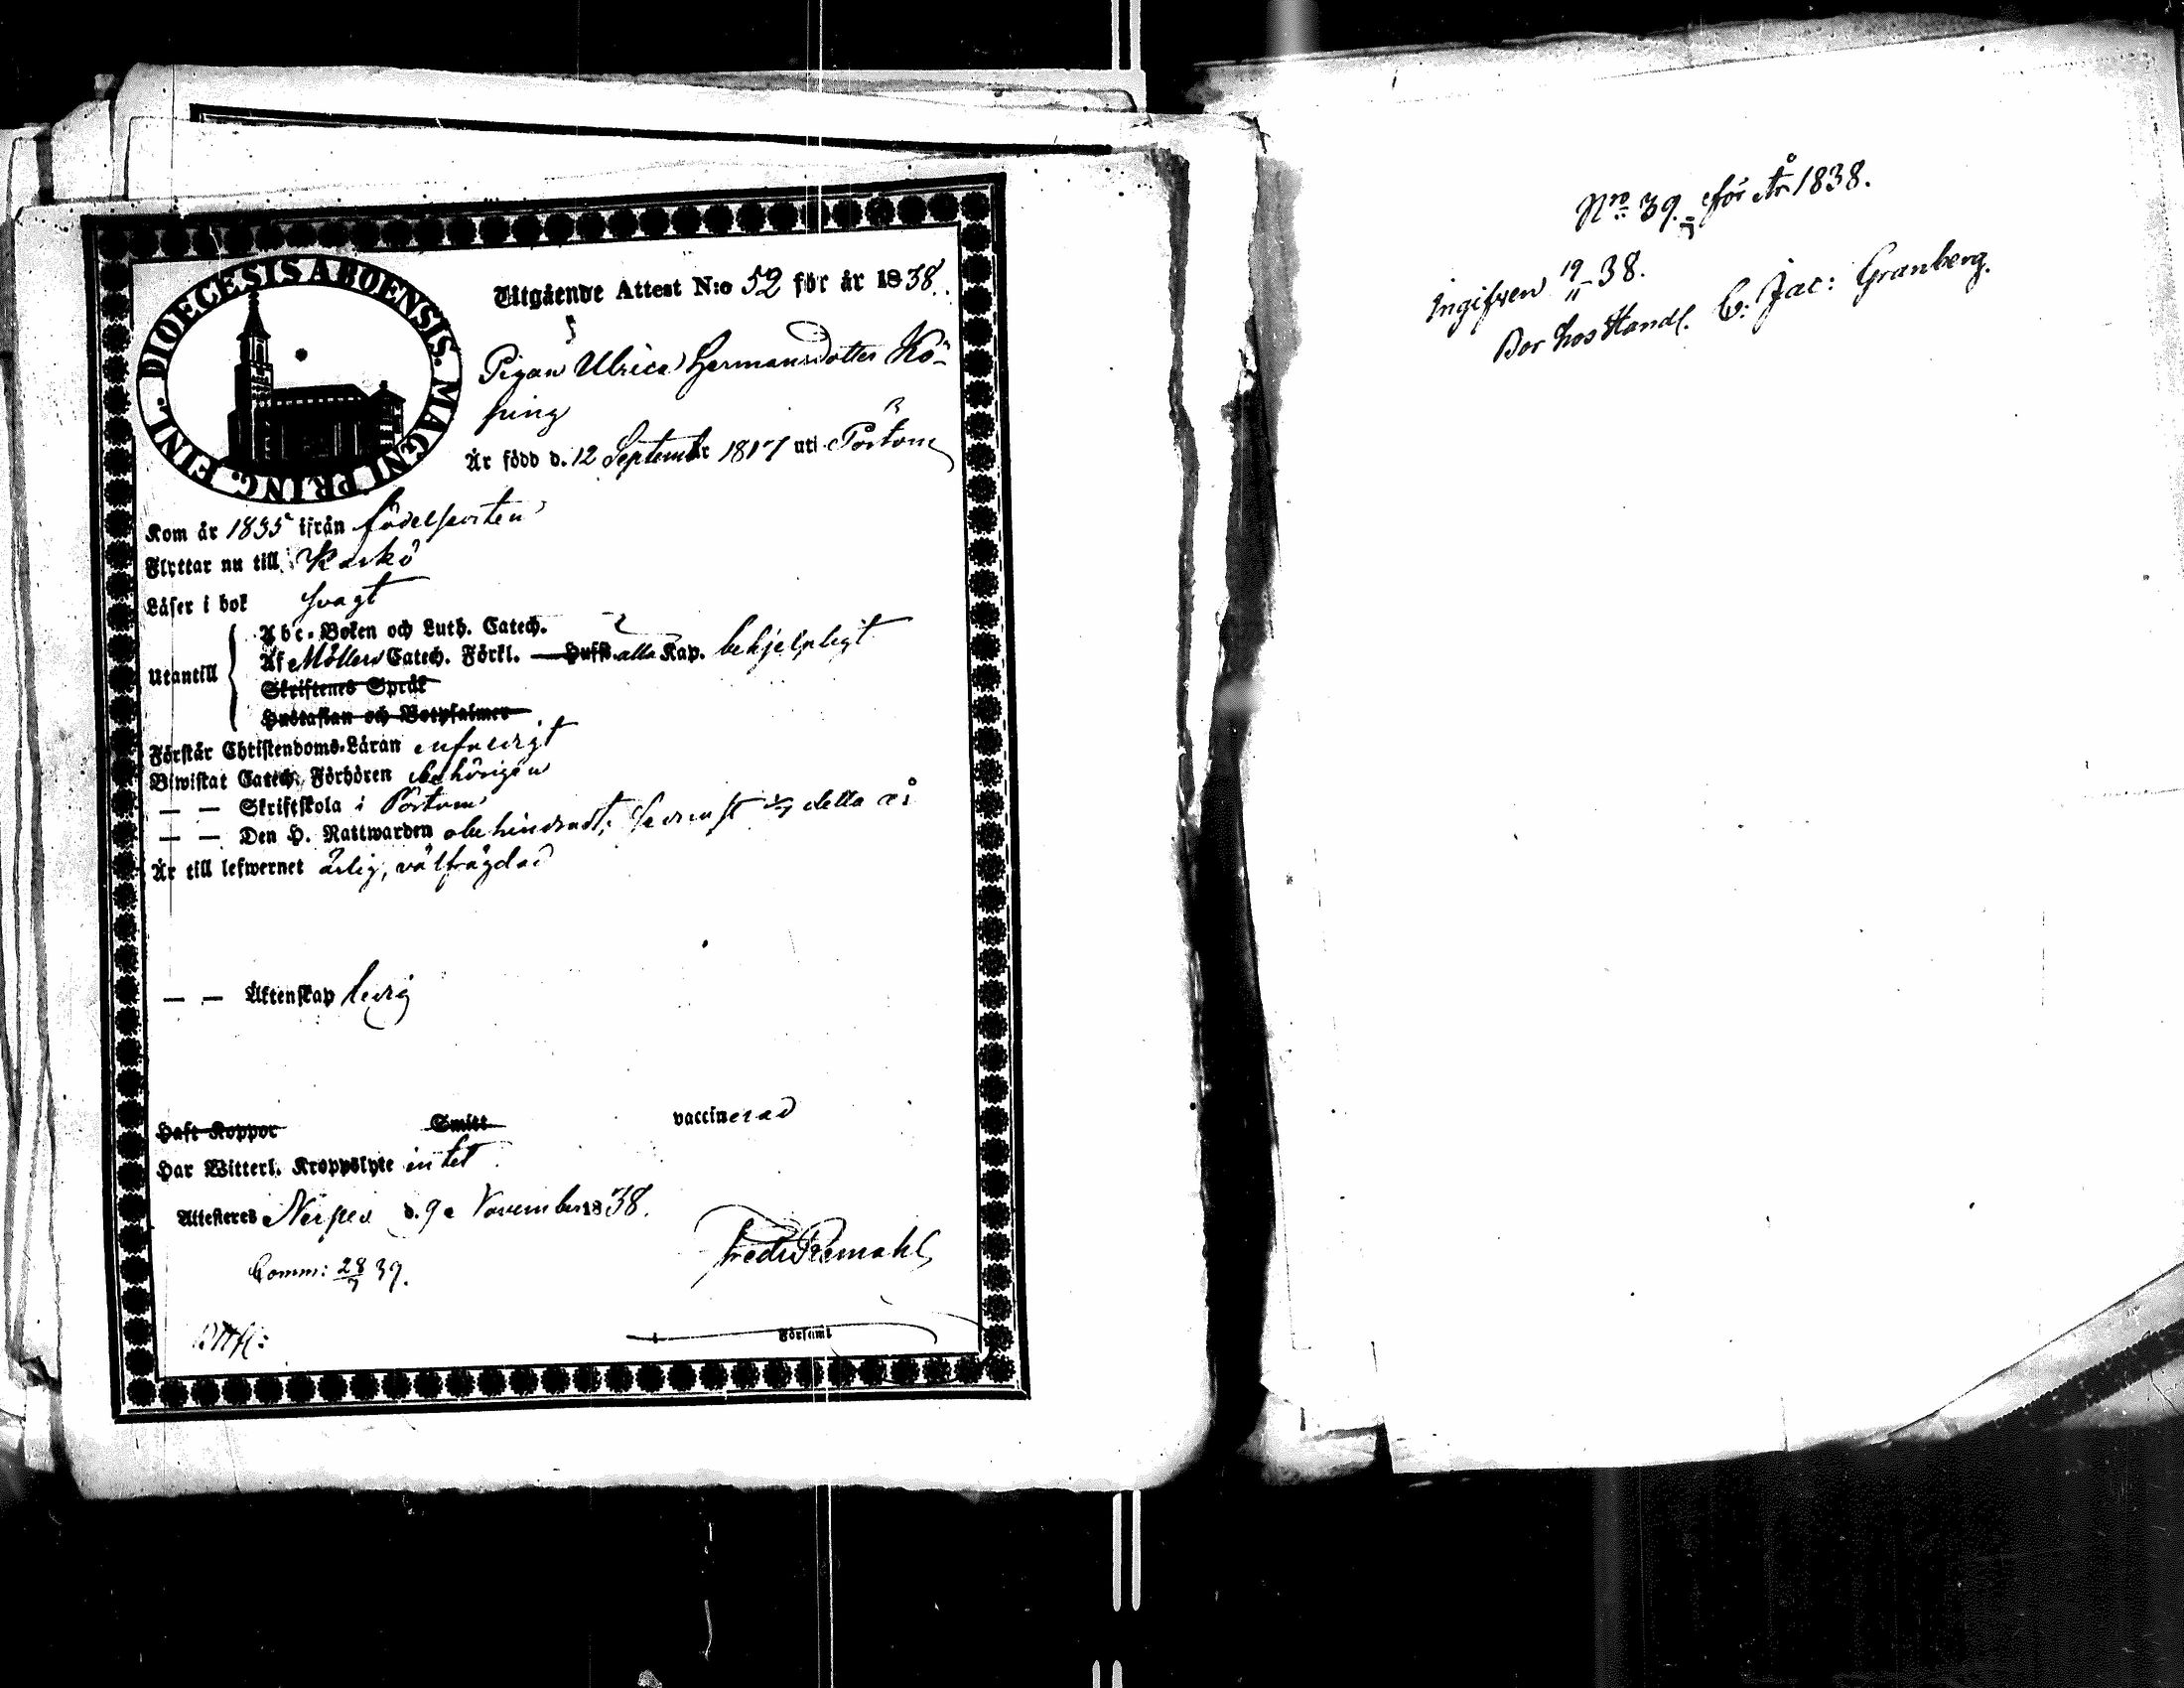 DIOECESIS ABOENSIS. MAGNI PRINC. FINL.
Utgående Attest N:o 52 för år 1838.
Pigan Ulrica Hermansdotter Kö-
ping
Är född d. 12 September 1817 uti Pörtom
Kom år 1835 ifrån födelseorten
Flyttar nu till Kaskö
Läser i bok svagt
Utantill
Abc-Boken och Luth. Catech.
Af Möllers Catech. Förkl. Husst. alla Kap. behjelpligt
Skriftenes Språk
Hustaflan och Botpsalmer
Förstår Christendoms-Läran enfaldigt
Biwistat Catech. Förhören behörigen
— — Skriftskola i Pörtom
— — Den H. Nattwarden obehindradt, senast detta år
Är till lefwernet ärlig, välfrägdad
— — Äktenskap ledig
Haft Koppor Smitt vaccinerad
Har Witterl. Kroppslyte intet
Attesteras Nerpes d. 9 November 1838.
Comm: 28/7 39.
Församl
Nro 39. för År 1838.
Ingifven 19/11 38.
Bor hos Handl. C: Jac: Granberg.